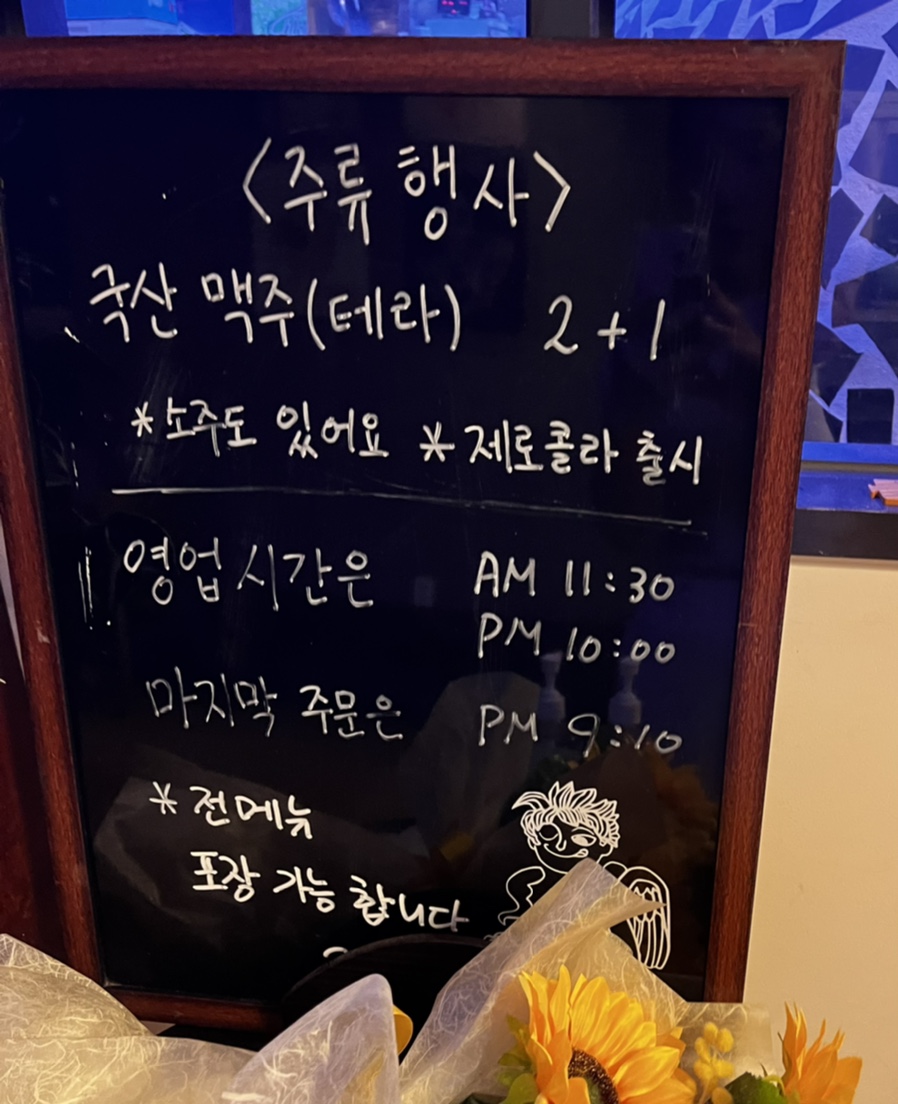 <주류 행사>
국산 맥주(테라) 2+1
*소주도 있어요 *제로콜라 출시
영업시간은 AM 11:30
PM 10:00
마지막 주문은 PM 9:10
*전메뉴
포장 가능 합니다